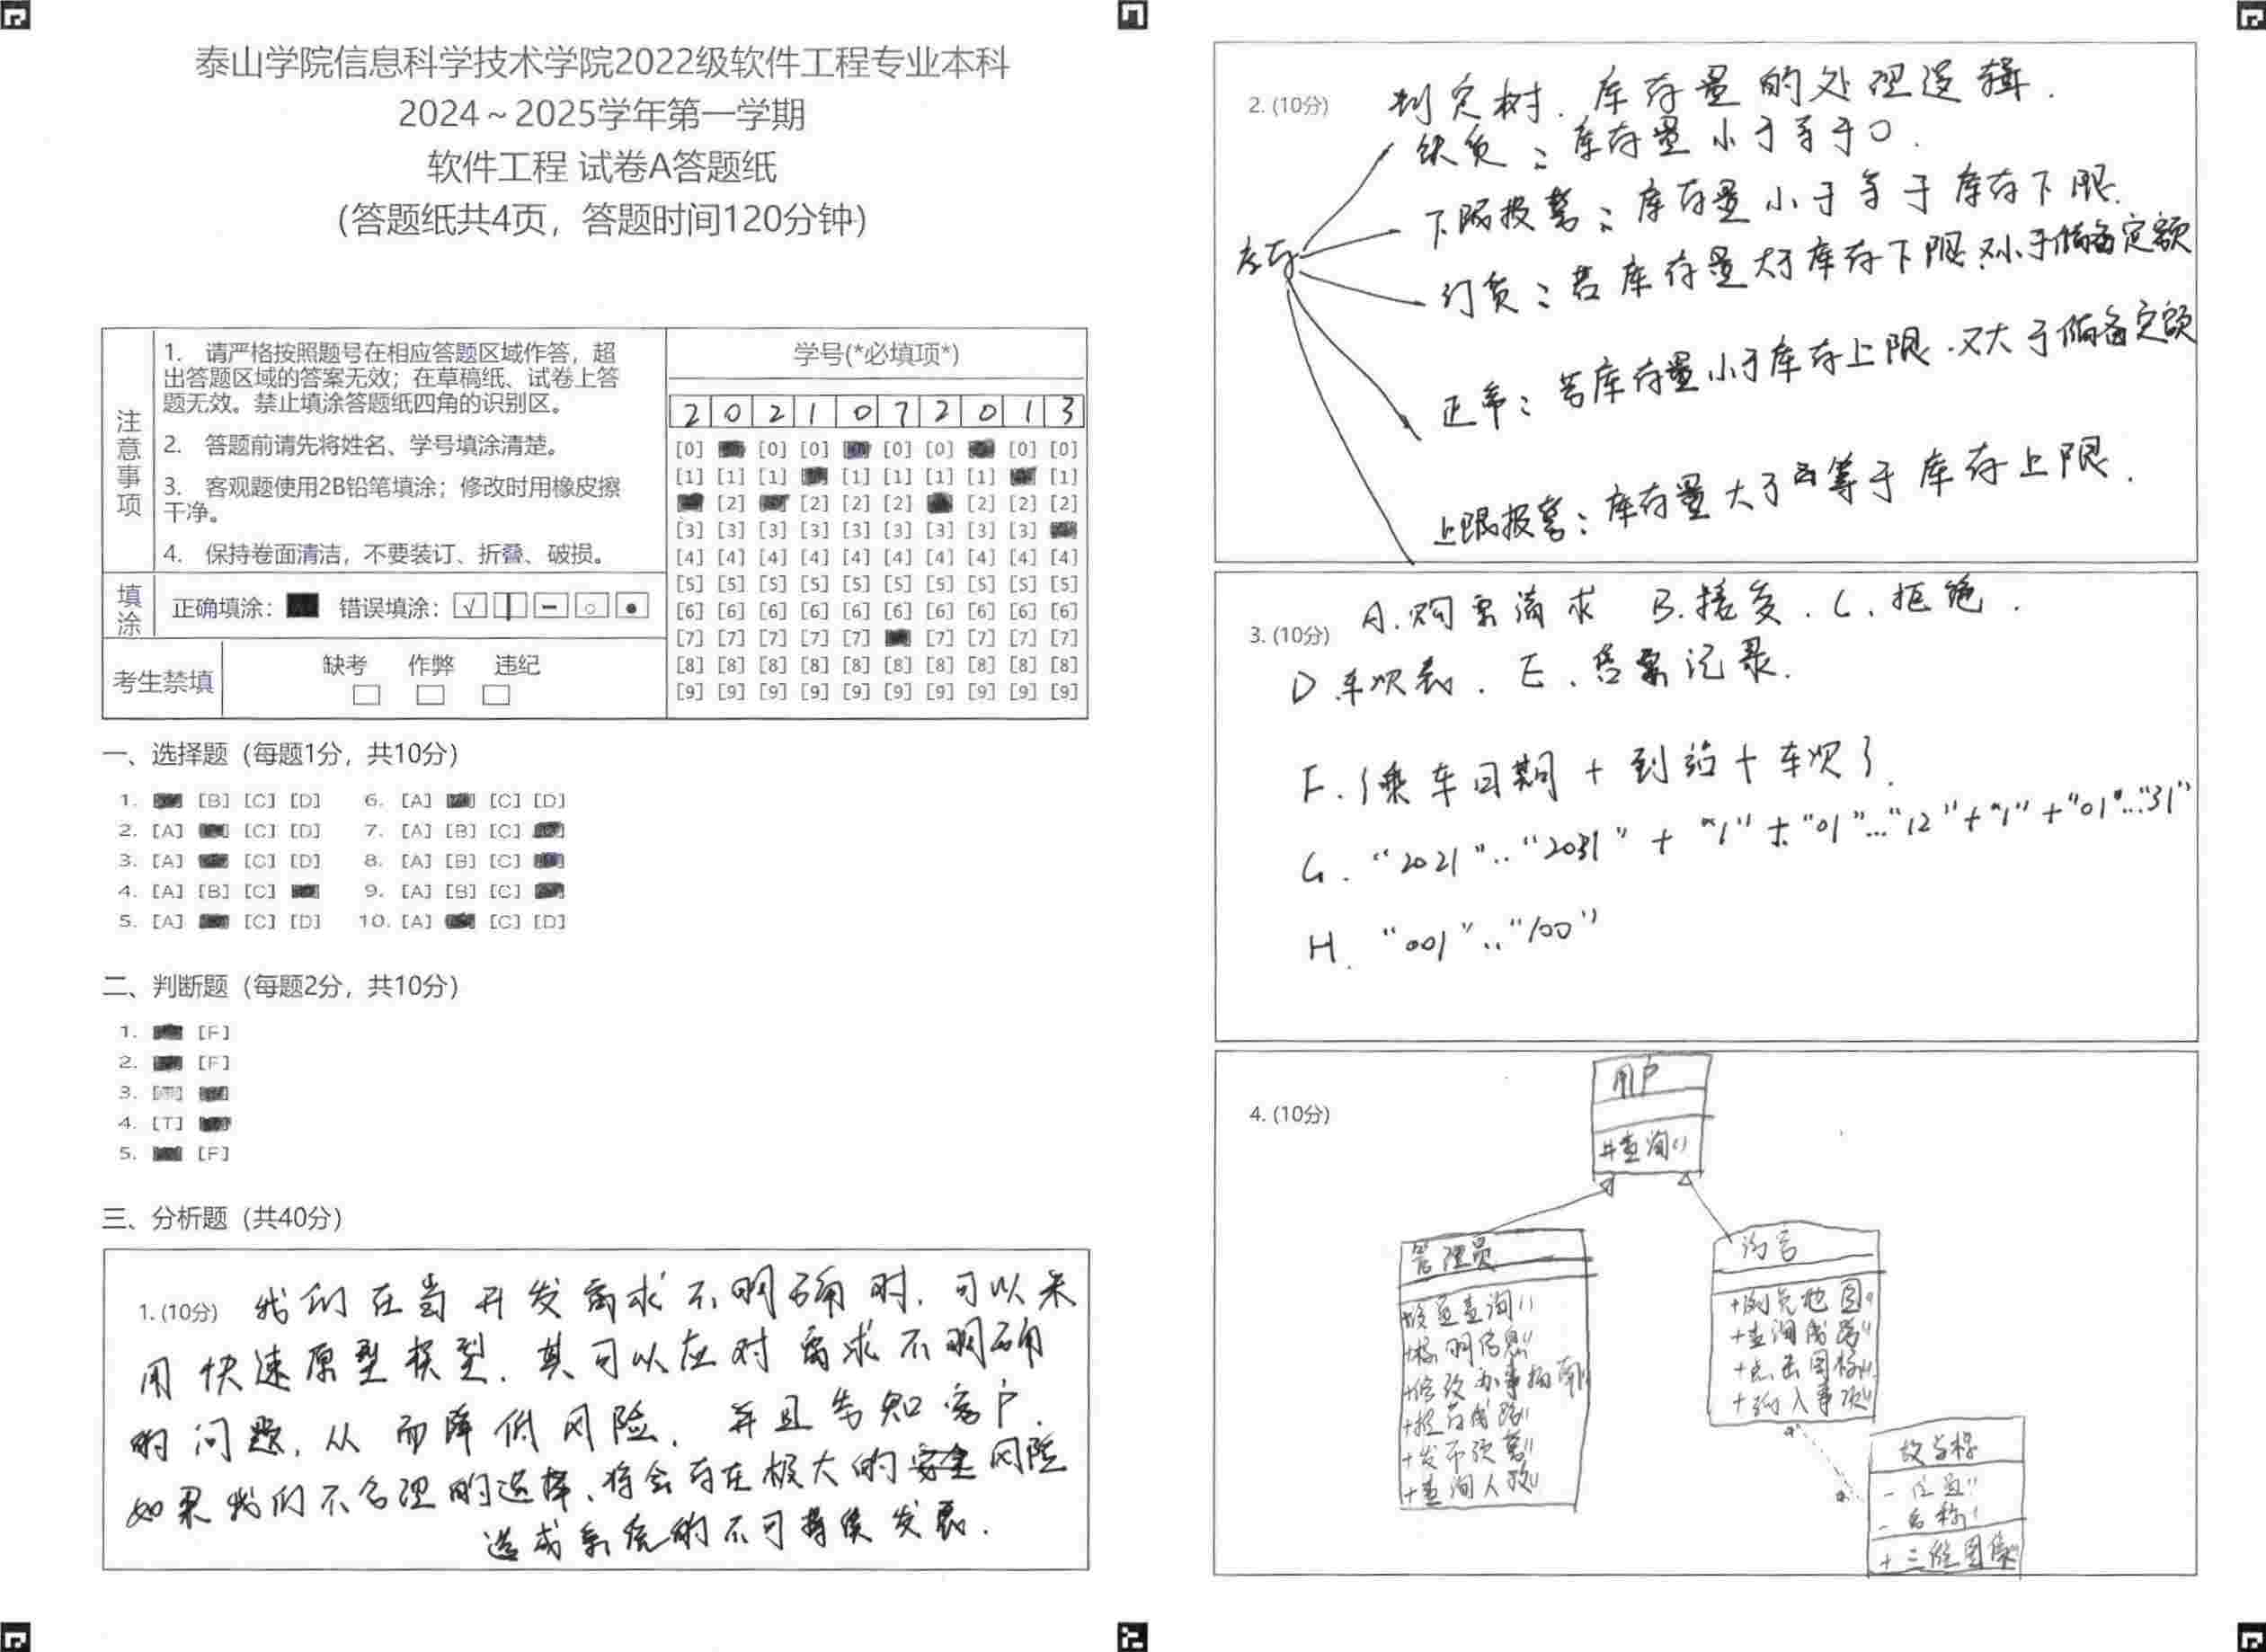 泰山学院信息科学技术学院2022级软件工程专业本科
2024～2025学年第一学期
软件工程 试卷A答题纸
（答题纸共4页，答题时间120分钟）
注意事项
1. 请严格按照题号在相应答题区域作答，超
出答题区域的答案无效；在草稿纸、试卷上答
题无效。禁止填涂答题纸四角的识别区。
2. 答题前请先将姓名、学号填涂清楚。
3. 客观题使用2B铅笔填涂；修改时用橡皮擦
干净。
4. 保持卷面清洁，不要装订、折叠、破损。
填涂
正确填涂： 错误填涂：
考生禁填
缺考 作弊 违纪
学号(*必填项*)
2 0 2 1 0 7 2 0 1 3
[0] [0] [0] [0] [0] [0] [0]
[1] [1] [1] [1] [1] [1] [1] [1]
[2] [2] [2] [2] [2] [2] [2]
[3] [3] [3] [3] [3] [3] [3] [3] [3]
[4] [4] [4] [4] [4] [4] [4] [4] [4] [4]
[5] [5] [5] [5] [5] [5] [5] [5] [5] [5]
[6] [6] [6] [6] [6] [6] [6] [6] [6] [6]
[7] [7] [7] [7] [7] [7] [7] [7] [7]
[8] [8] [8] [8] [8] [8] [8] [8] [8] [8]
[9] [9] [9] [9] [9] [9] [9] [9] [9] [9]
一、选择题（每题1分，共10分）
1. [B] [C] [D] 6. [A] [C] [D]
2. [A] [C] [D] 7. [A] [B] [C]
3. [A] [C] [D] 8. [A] [B] [C]
4. [A] [B] [C] 9. [A] [B] [C]
5. [A] [C] [D] 10. [A] [C] [D]
二、判断题（每题2分，共10分）
1. [F]
2. [F]
3.
4. [T]
5. [F]
三、分析题（共40分）
1. (10分) 我们在当开发需求不明确时，可以采
用快速原型模型，其可以应对需求不明确
的问题，从而降低风险，并且告知客户，
如果我们不合理的选择，将会存在极大的风险
造成系统的不可持续发展．
2. (10分) 判定树．库存量的处理逻辑．
库存
缺货：库存量小于等于0．
下限报警：库存量小于等于库存下限．
订货：若库存量大于库存下限，又小于储备定额
正常：若库存量小于库存上限．又大于储备定额
上限报警：库存量大于等于库存上限．
3. (10分) A．购票请求 B．接受．C．拒绝．
D 车次表． E．售票记录．
F．{乘车日期＋到站＋车次}．
G．“2021”..“2031”＋“/”＋“01”..“12”＋“/”＋“01”..“31”
H．“001”..“100”
4. (10分)
用户
#查询()
管理员
+标明信息()
+修改办事指南()
+推荐线路()
+发布预警()
+查询人数()
访客
+浏览地图()
+查询线路()
+点击图标()
+输入事项()
故障标
- 位置()
- 名称()
+三维图像